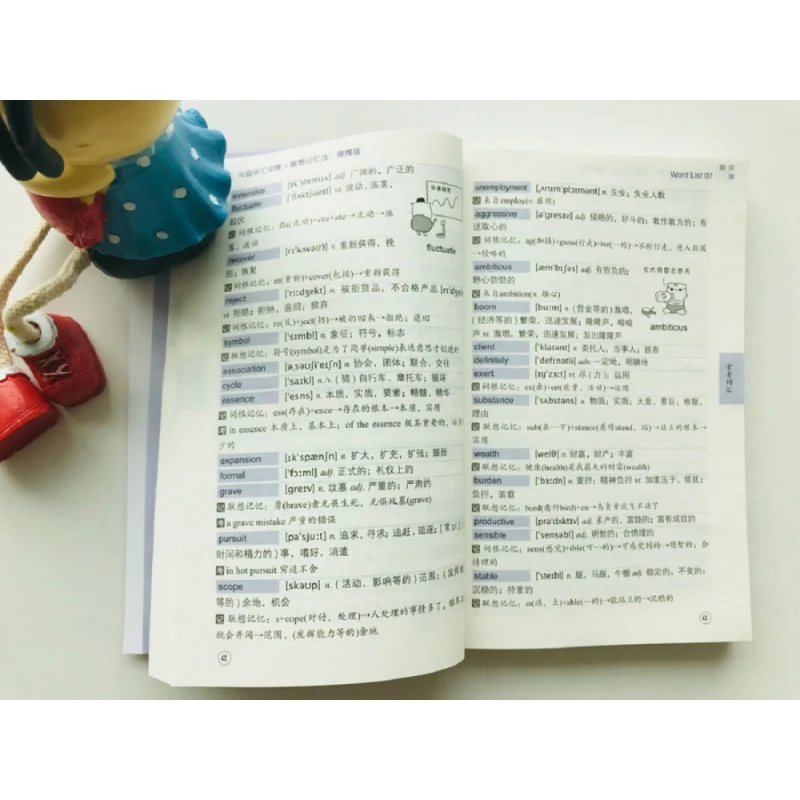 六级词汇词根+联想记忆法：便携版
extensive [ɪk'stensɪv] adj. 广阔的，广泛的
fluctuate ['flʌktʃueɪt] vi. 波动，涨落，
起伏
记 词根记忆：flu(流动)+ctu+ate→流动→涨
落，波动
fluctuate
recover [rɪ'kʌvə(r)] v. 重新获得，挽
回；恢复
记 词根记忆：re(重新)+cover(包括)→重新获得
reject ['riːdʒekt] n. 被拒货品，不合格产品 [rɪ'dʒek
vt. 拒绝；拒纳，退回；摈弃
记 词根记忆：re(反)+ject(扔)→被扔回来→拒绝；退回
symbol ['sɪmbl] n. 象征；符号，标志
记 联想记忆：符号(symbol)是为了简单(simple)表达意思才创造的
association [əˌsəʊʃi'eɪʃn] n. 协会，团体；联合，交往
cycle ['saɪkl] n./v. (骑)自行车、摩托车；循环
essence ['esns] n. 本质，实质，要素；精髓，精华
记 词根记忆：ess(存在)+ence→存在的根本→本质，实质
考 in essence 本质上，基本上；of the essence 极其重要的，必不
少的
expansion [ɪk'spænʃn] n. 扩大，扩充，扩张；膨胀
formal ['fɔːml] adj. 正式的；礼仪上的
grave [ɡreɪv] n. 坟墓 adj. 严重的；严肃的
记 联想记忆：勇(brave)者无畏生死，无惧坟墓(grave)
考 a grave mistake 严重的错误
pursuit [pə'sjuːt] n. 追求，寻求；追赶，追逐；[常 pl.]
时间和精力的)事，嗜好，消遣
考 in hot pursuit 穷追不舍
scope [skəʊp] n. (活动、影响等的)范围；(发挥
等的)余地，机会
记 联想记忆：s+cope(对付，处理)→人处理的事情多了，眼界
就会开阔→范围，(发挥能力等的)余地
42
Word List 07
unemployment [ˌʌnɪm'plɔɪmənt] n. 失业；失业人数
记 来自employ(v. 雇用)
aggressive [ə'ɡresɪv] adj. 侵略的，好斗的；敢作敢为的；有
进取心的
记 词根记忆：ag(加强)+gress(行走)+ive(…的)→不断行走，进入别国
→侵略的
ambitious [æm'bɪʃəs] adj. 有抱负的；
野心勃勃的
记 来自ambition(n. 雄心)
ambitious
boom [buːm] n. (营业等的)激增，
(经济等的)繁荣，迅速发展；隆隆声，嗡嗡
声 vi. 激增，繁荣，迅速发展；发出隆隆声
client ['klaɪənt] n. 委托人，当事人；顾客
definitely ['defɪnətli] adv. 一定地，明确地
exert [ɪɡ'zɜːt] vt. 尽(力)；运用
记 词根记忆：ex(出)+ert(能量，活动)→运用
substance ['sʌbstəns] n. 物质；实质；大意，要旨；根据，
理由
记 联想记忆：sub(在…下)+stance(看作stand，站)→站立的根本→
实质
wealth [welθ] n. 财富，财产；丰富
记 联想记忆：健康(health)是我最大的财富(wealth)
burden ['bɜːdn] n. 重担；精神负担 vt. 加重压于，烦扰；
负担，装载
记 联想记忆：burd(看作bird)+en→鸟负重就飞不动了
productive [prə'dʌktɪv] adj. 多产的，富饶的；富有成效的
sensible ['sensəbl] adj. 明智的；合情理的
记 词根记忆：sens(感觉)+ible(可…的)→可感觉到的→明智的；合
情理的
stable ['steɪbl] n. 厩，马厩，牛棚 adj. 稳定的，不变的；
沉稳的；持重的
记 联想记忆：st(站，立)+able(…的)→能站立的→沉稳的
常考词汇
43